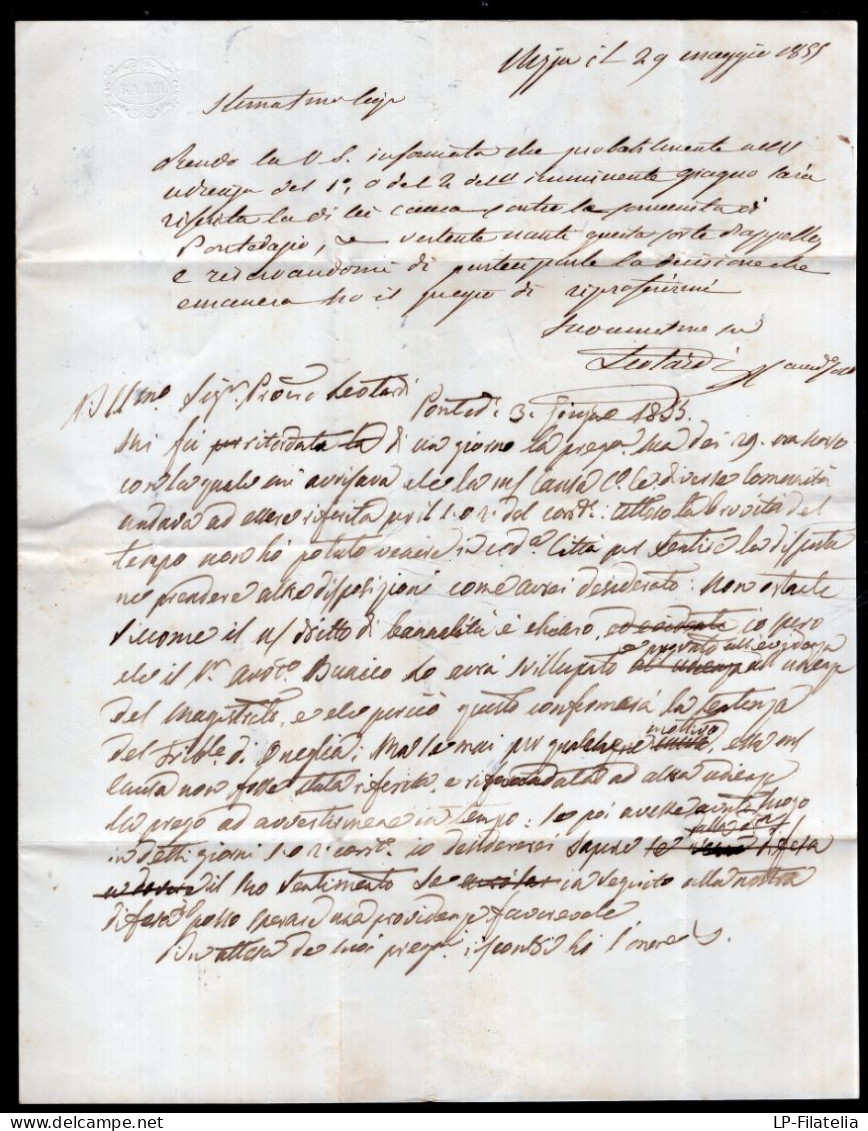 BATH
Nizza il 29 maggio 1855
Stimatmo Sigr
Rendo la V S. informata che probabilmente nell'
udienza del 1°, o del 2 dell'imminente giugno sarà
riferita la di lei causa contro la comunità di
Pontedassio, e vertente nanti questa Corte d'appello,
e riservandomi di parteciparle la decisione che
emanerà ho il pregio di riprofferirmi
Leotardi
Illmo Sigr Leotardi
Ponted. 3. Giugno 1855.
Mi fu di un giorno la preg. sua dei 29. ora scorso
con la quale mi avvisava che la causa diverse Comunità
andava ad essere riferita pel 1. o 2. del corre: atteso la brevità del
tempo non ho potuto venire in Città per sentire la disputa
ne prendere altre disposizioni come avrei desiderato: Non ostante
siccome il diritto di bannalità è chiaro, io pero
che il Sr Avvto. Bunico lo avrà sviluppato e provato all'evidenza all'udienza
del Magistrato, e che perciò questo confermerà la sentenza
del Trible. di Oneglia; Ma se mai per qualche motivo
causa non fosse stata riferita e ad altra udienza
la prego ad avvertirmene in tempo: Se poi avesse avuto luogo
in detti giorni 1. o 2. corre. io desidererei sapere
il suo sentimento se in seguito alla nostra
difesa posso sperare una providenza favorevole
In attesa de suoi preg. riscontri ho l'onore
LP-Filatelia